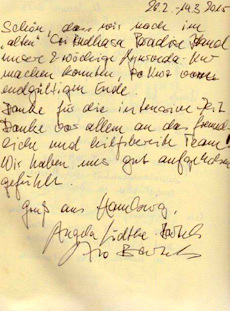 28.2. - 14.3.2015
Schön, dass wir noch im
"alten" Paradise Island
unsere 2-wöchige Ayurveda-Kur
machen konnten, so kurz vorm
endgültigen Ende.
Danke für die intensive Zeit
Danke vor allem an das freund-
liche und hilfsbereite Team!
Wir haben uns gut aufgehoben
gefühlt.
Gruß aus Hamburg,
Angela Lüdtke-Bartels
Ivo Bartels